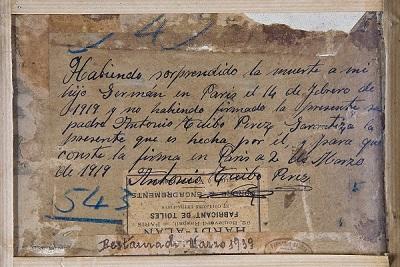 Habiendo sorprendido la muerte a mi
hijo Germán en París el 14 de febrero de
1919 y no habiendo firmado la presente su
padre Antonio Cueibo Perez. Garantiza la
presente que es hecha por él, y para que
conste la firma en París a 2 de Marzo
de 1919 Antonio Perez
543
HARDY-ALAN
FABRIQUANT DE TOILES
Restaurado Marzo 1939